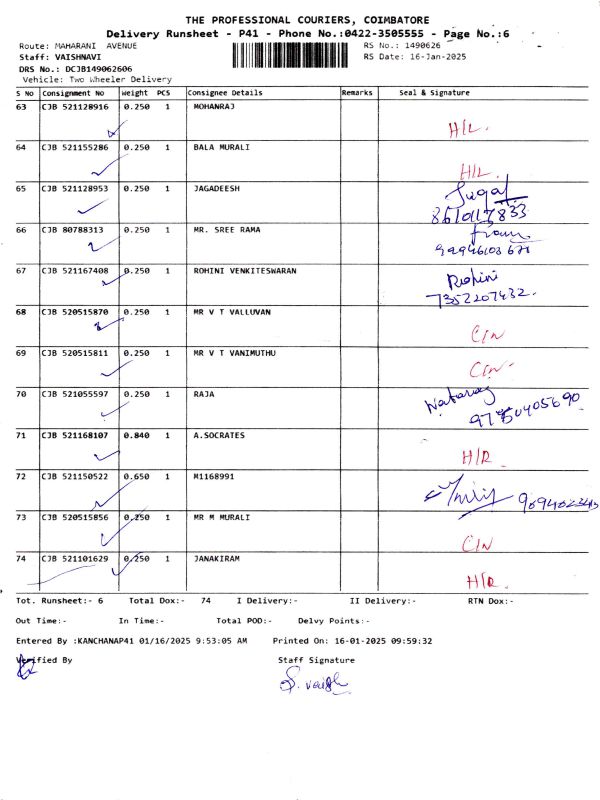 THE PROFESSIONAL COURIERS, COIMBATORE
Delivery Runsheet - P41 - Phone No.:0422-3505555 - Page No.:6
Route: MAHARANI AVENUE RS No.: 1490626
Staff: VAISHNAVI RS Date: 16-Jan-2025
DRS No.: DCJB149062606
Vehicle: Two Wheeler Delivery
S No Consignment No Weight PCS Consignee Details Remarks Seal & Signature
63 CJB 521128916 0.250 1 MOHANRAJ H/L.
64 CJB 521155286 0.250 1 BALA MURALI H/L
65 CJB 521128953 0.250 1 JAGADEESH
8610117833
66 CJB 80788313 0.250 1 MR. SREE RAMA
67 CJB 521167408 0.250 1 ROHINI VENKITESWARAN Rohini
7352207432.
68 CJB 520515870 0.250 1 MR V T VALLUVAN C/N
69 CJB 520515811 0.250 1 MR V T VANIMUTHU C/N
70 CJB 521055597 0.250 1 RAJA Nataraj
9750405690
71 CJB 521168107 0.840 1 A.SOCRATES H/R
72 CJB 521150522 0.650 1 M1168991
73 CJB 520515856 0.250 1 MR M MURALI C/N
74 CJB 521101629 0.250 1 JANAKIRAM H/R.
Tot. Runsheet:- 6 Total Dox:- 74 I Delivery:- II Delivery:- RTN Dox:-
Out Time:- In Time:- Total POD:- Delvy Points:-
Entered By :KANCHANAP41 01/16/2025 9:53:05 AM Printed On: 16-01-2025 09:59:32
Verified By Staff Signature
S. vaish